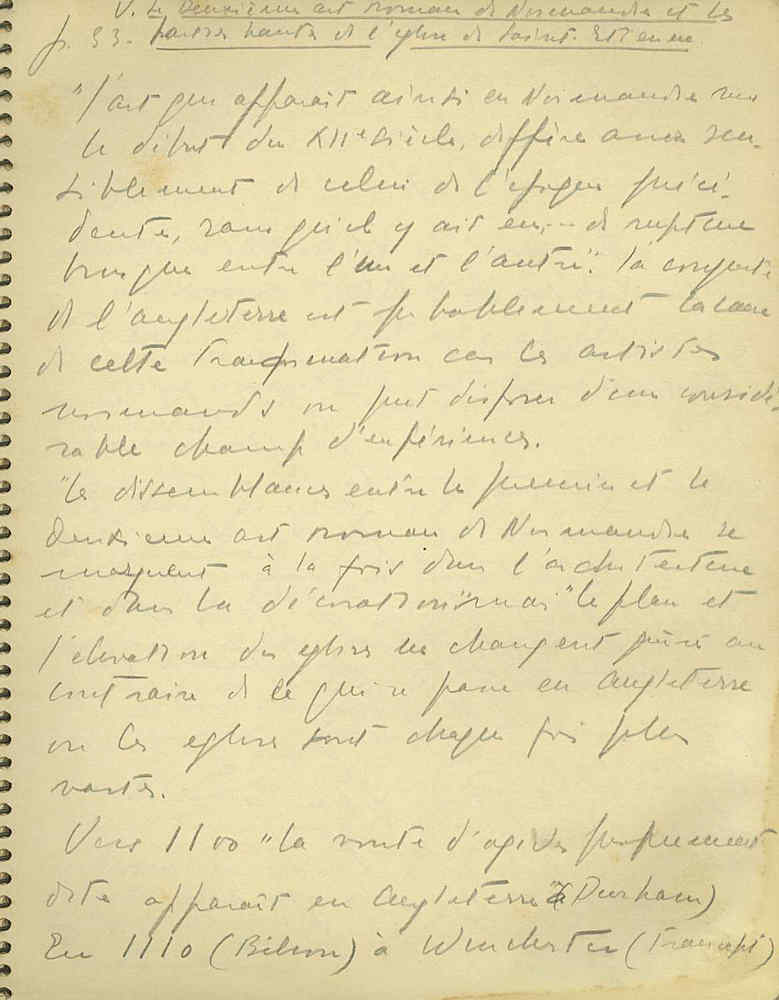 V. Le Deuxième art roman de Normandie et les
p. 33. parties hautes de l'église de Saint-Etienne.
"l'art qui apparait ainsi en Normandie vers
le début du XIIe siècle, diffère assez sen-
siblement de celui de l'époque précé-
dente, sans qu'il y ait eu... de rupture
brusque entre l'un et l'autre". la conquête
de l'angleterre est probablement la cause
de cette transformation car les artistes
normands on put disposer d'un considé-
rable champ d'expériences.
"les dissemblances entre le premier et le
deuxieme art roman de Normandie se
marquent à la fois dans l'architecture
et dans la décoration" mais "le plan et
l'élévation des eglises ne changent guère au
contraire de ce qui se passe en Angleterre
ou les eglises sont chaque fois plus
vastes.
Vers 1100 "la voute d'ogives proprement
dite apparaît en Angleterre" (à Durham)
En 1110 (Bilson) à Winchester (Transept)